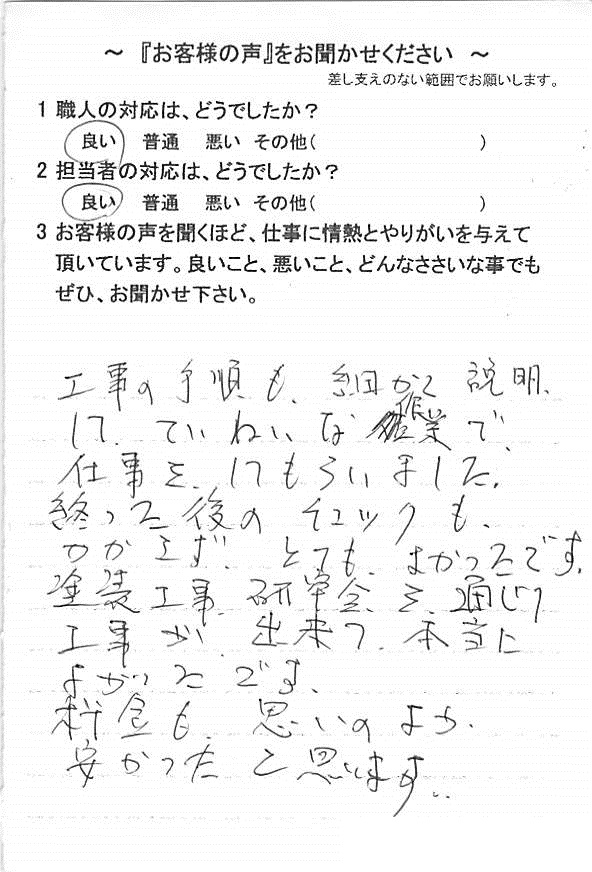 ～ 『お客様の声』をお聞かせください ～
差し支えのない範囲でお願いします。
1 職人の対応は、どうでしたか？
良い 普通 悪い その他( )
2 担当者の対応は、どうでしたか？
良い 普通 悪い その他( )
3 お客様の声を聞くほど、仕事に情熱とやりがいを与えて
頂いています。良いこと、悪いこと、どんなささいな事でも
ぜひ、お聞かせ下さい。
工事の手順も、細かく説明、
して、ていねいな作業で、
仕事を、してもらいました。
終った後のチェックも、
かかさず、とても、よかったです。
塗装工事、研究会、を、通じて
工事が、出来て、本当に
よかったです。
料金も、思いのよか、
安かったと思います。